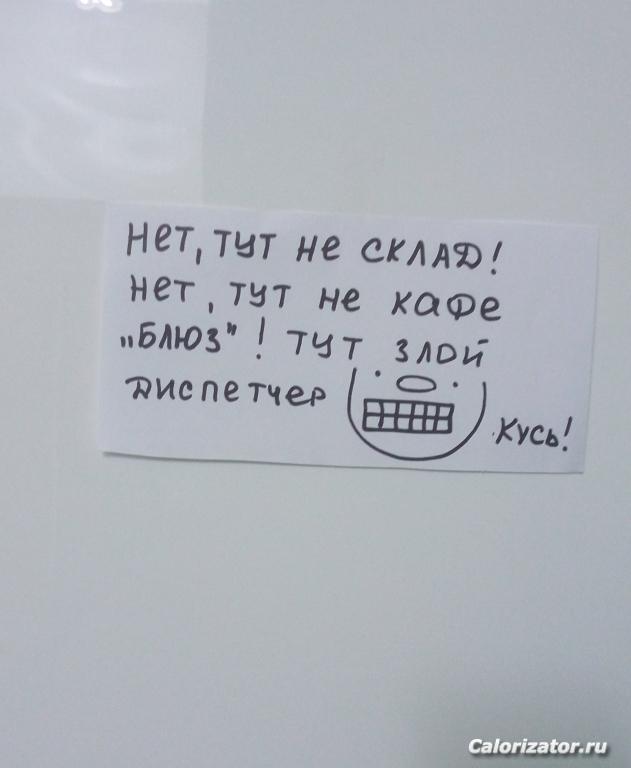 Нет, тут не склад!
Нет, тут не кафе
„Блюз"! Тут злой
диспетчер
Кусь!
Calorizator.ru